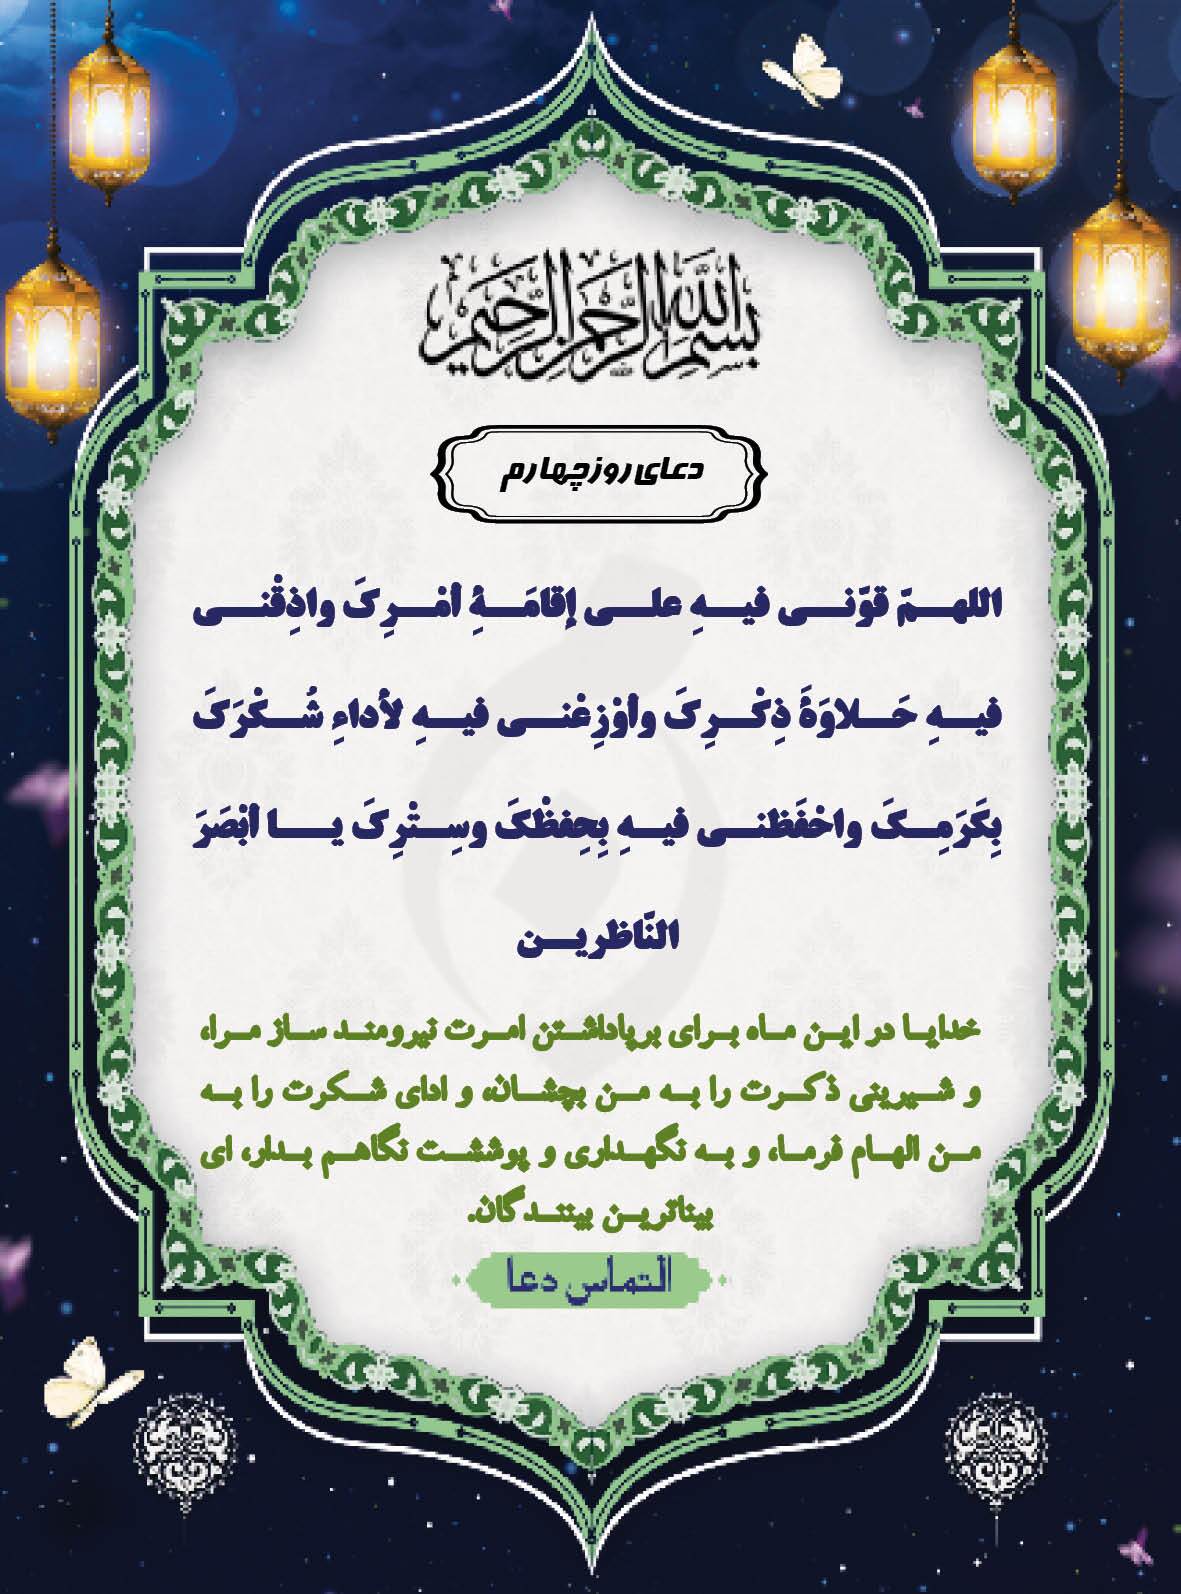 بسم الله الرحمن الرحیم
دعای روز چهارم
اللهمّ قوّنی فیهِ علی إقامَةِ أمْرِکَ واذِقْنی
فیهِ حَلاوَةَ ذِکْرِکَ وأوْزِعْنی فیهِ لأداءِ شُکْرَکَ
بِکَرَمِکَ واحْفَظنی فیهِ بِحِفظْکَ وسِتْرِکَ یا أبْصَرَ
النّاظرین
خدایا در این ماه برای برپاداشتن امرت نیرومند ساز مرا،
و شیرینی ذکرت را به من بچشان، و ادای شکرت را به
من الهام فرما، و به نگهداری و پوششت نگاهم بدار، ای
بیناترین بینندگان.
التماس دعا